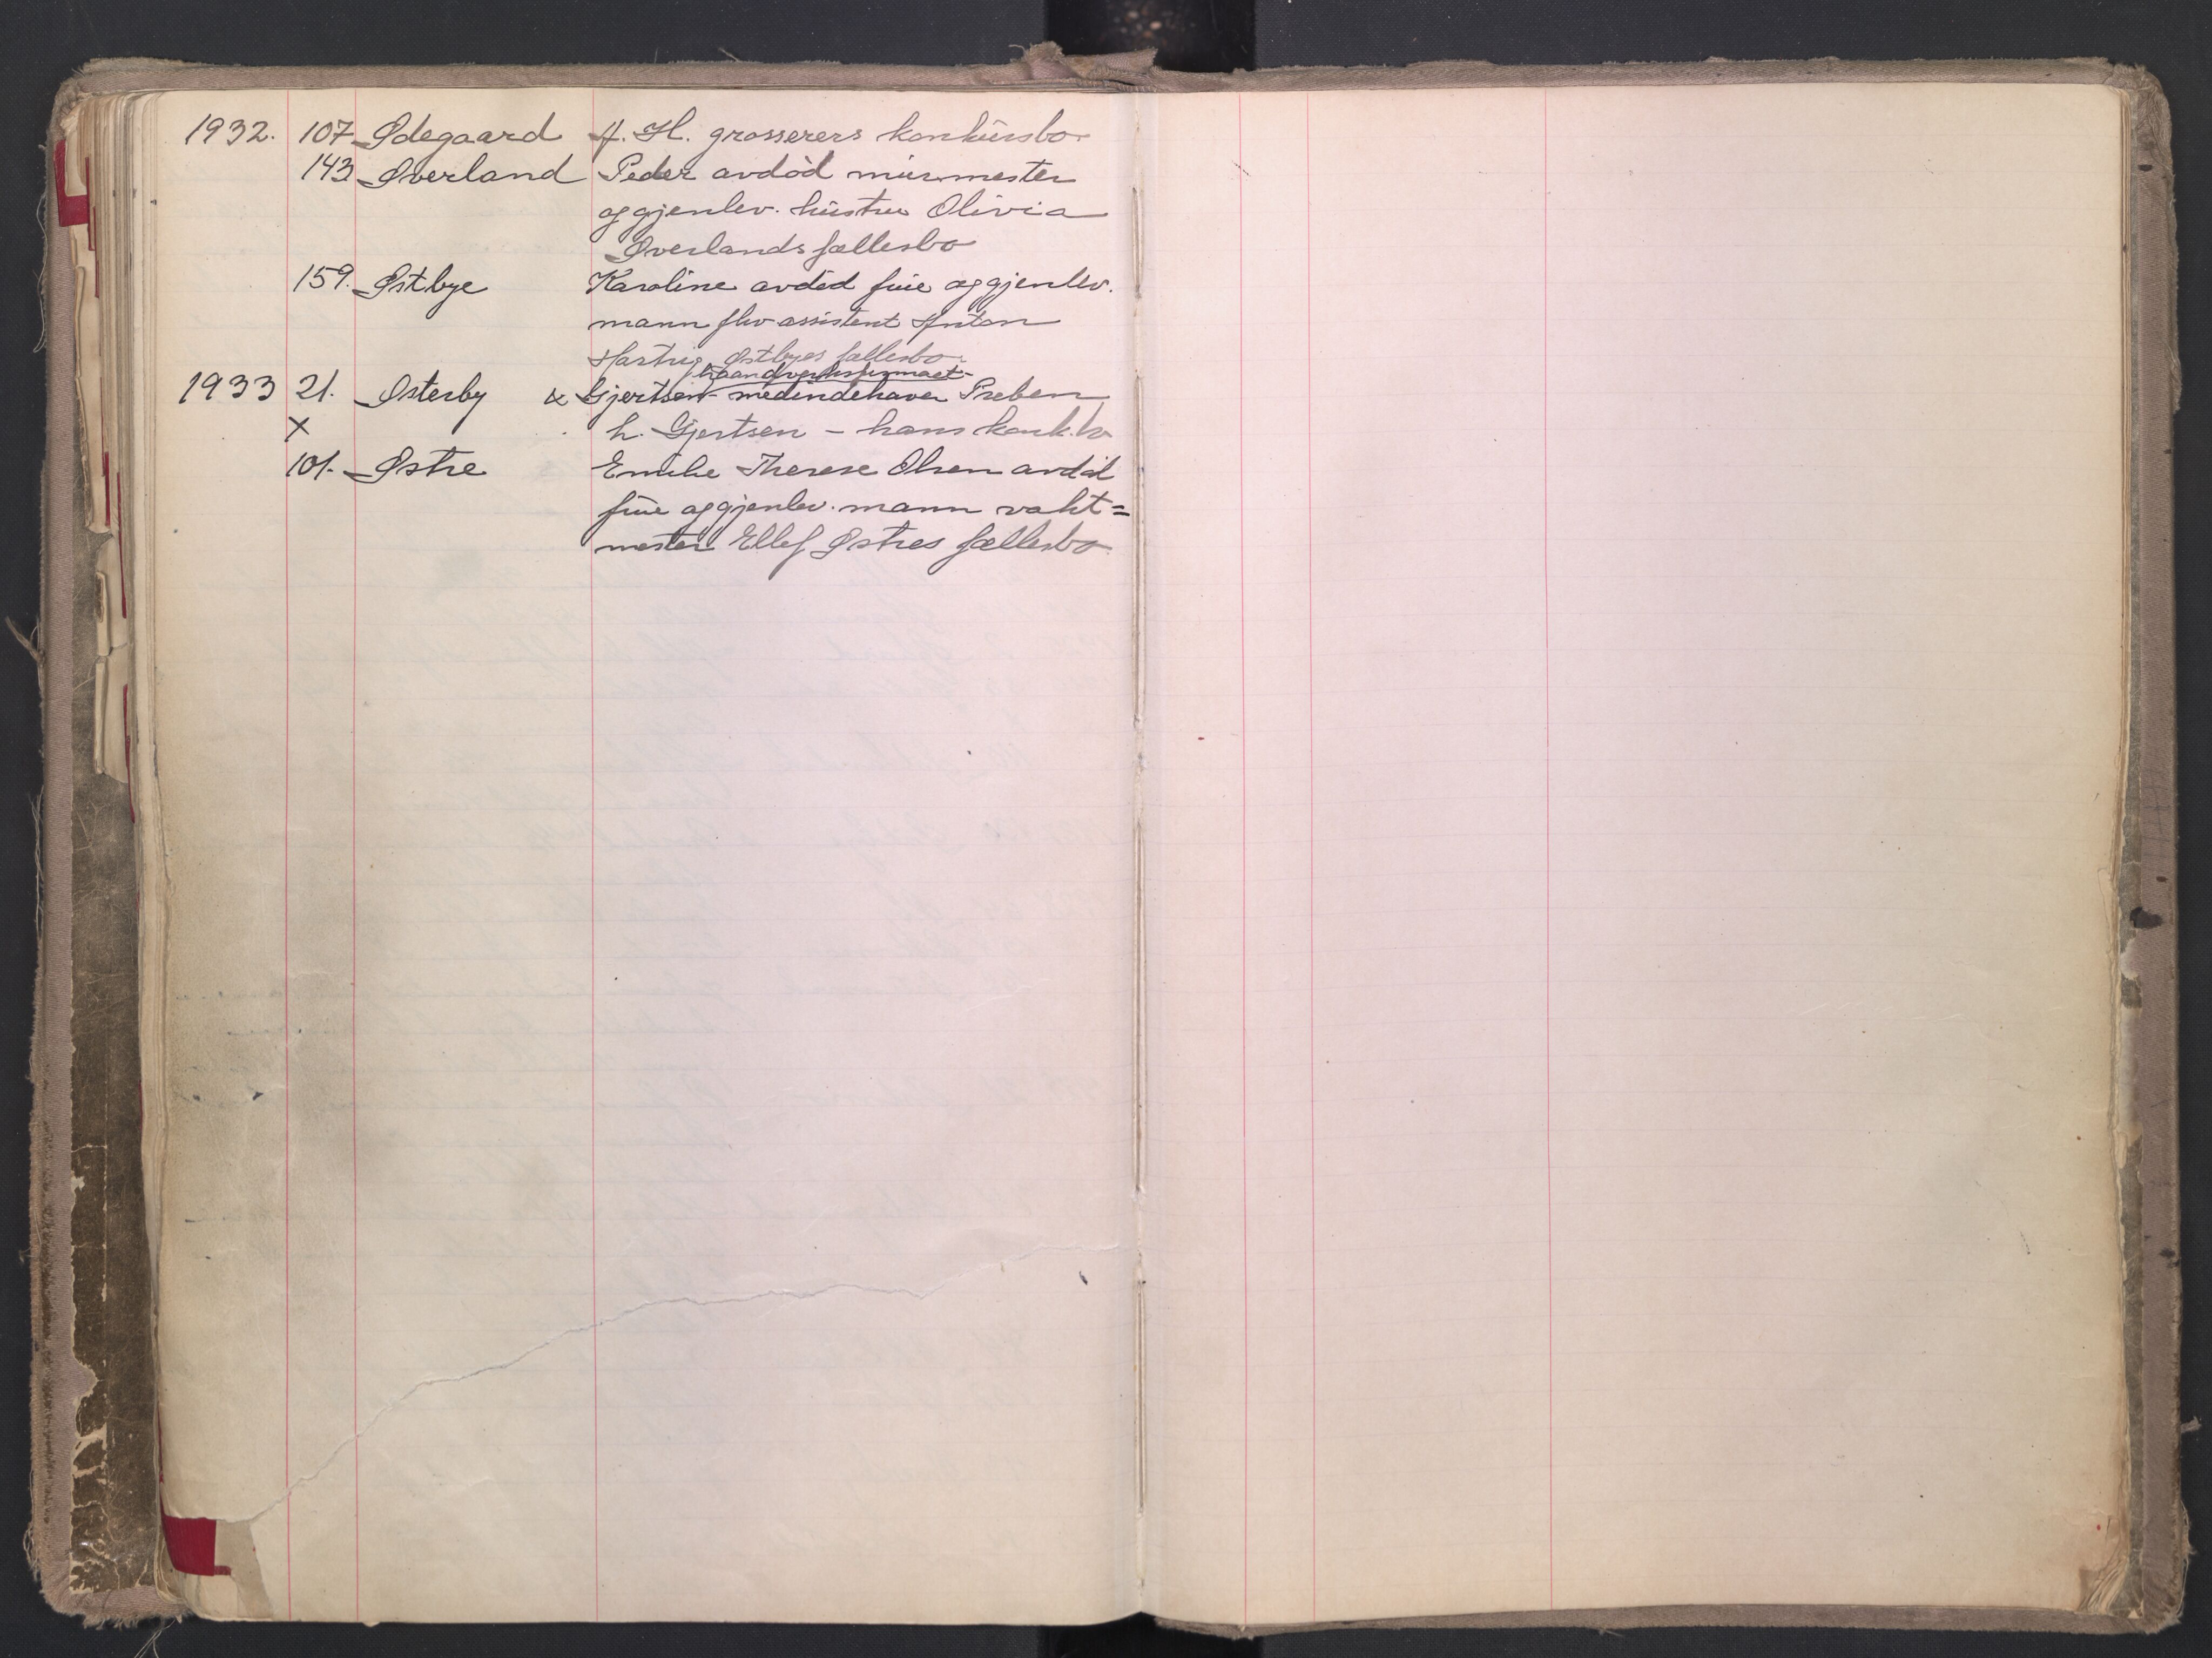 1932. 107 Ødegaard A. H. grosserers konkursbo
143 Øverland Peder avdöd murmester
og gjenlev. hustru Olivia
Øverlands fællesbo
159. Østbye Karoline avdød frue og gjenlev.
mann fhv assistent Anton
Hartvig Østbyes fællesbo
haandverksfirmaet
1933 21. Østerby & Gjertsen medindehaver Preben
X h. Gjertsen – hans konk.bo
101. Østre Emilie Therese Olsen avdöd
frue og gjenlev. mann vakt=
mester Ellef Østres fællesbo